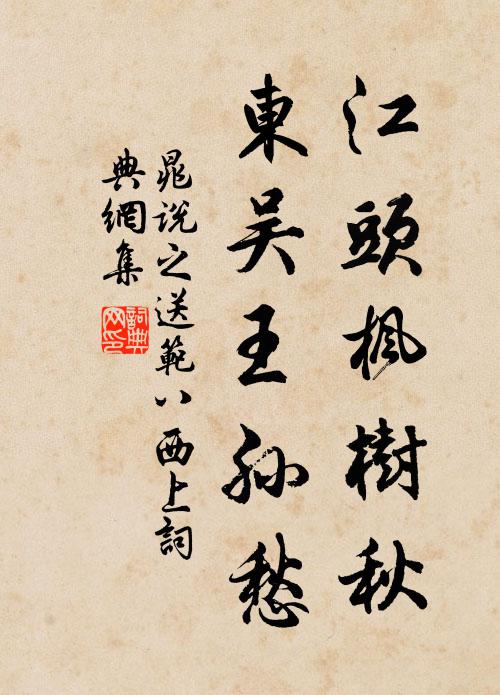 江頭楓樹秋
東吴王孫愁
晁說之送範八西上詞
典網集
詞典
网印